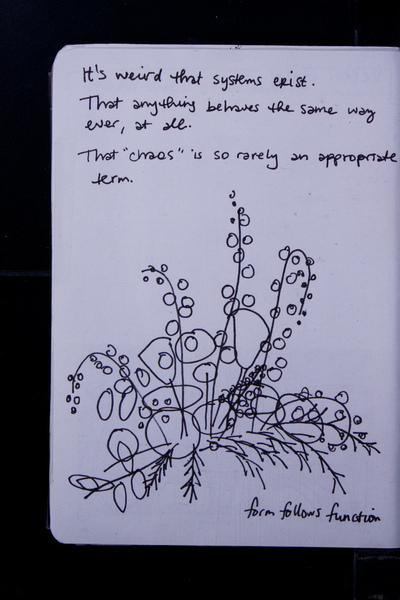 It's weird that systems exist.
That anything behaves the same way
ever, at all.
That "chaos" is so rarely an appropriate
term.
form follows function